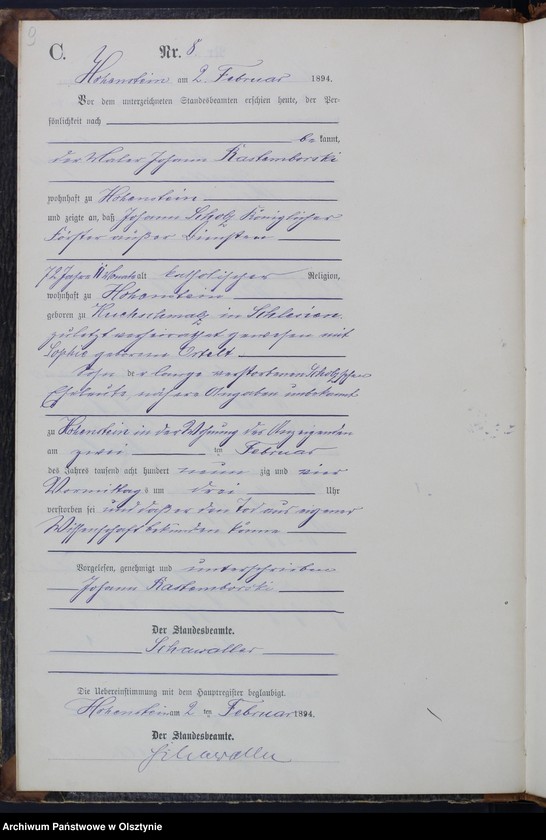 9
C. Nr. 8
Hohenstein am 2. Februar 1894.
Vor dem unterzeichneten Standesbeamten erschien heute, der Per-
sönlichkeit nach
be kannt,
der Maler Johann Kastemborski
wohnhaft zu Hohenstein
und zeigte an, daß Johann Scholz Königlicher
Förster außer Diensten
72 Jahre 11 Monate alt katholischer Religion,
wohnhaft zu Hohenstein
geboren zu in Schlesien
zuletzt verheirathet gewesen mit
Sophie geborene Ertelt
Sohn der lange verstorbenen Scholzschen
Eheleute nähere Angaben unbekannt
zu Hohenstein in der Wohnung des Anzeigenden
am zwei ten Februar
des Jahres tausend acht hundert neun zig und vier
Vormittags um drei Uhr
verstorben sei und daß er den Tod aus eigener
Wissenschaft bekunden könne
Vorgelesen, genehmigt und unterschrieben
Johann Kastemborski
Der Standesbeamte.
Schawaller
Die Uebereinstimmung mit dem Hauptregister beglaubigt.
Hohenstein am 2 ten Februar 1894.
Der Standesbeamte.
Schawaller
Archiwum Państwowe w Olsztynie